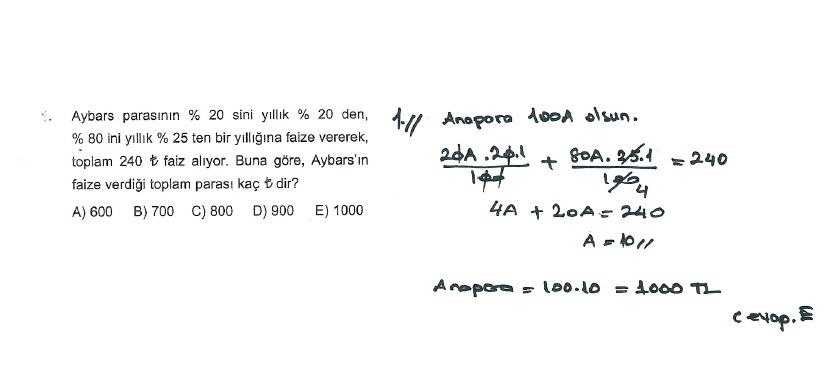 1. Aybars parasının % 20 sini yıllık % 20 den,
% 80 ini yıllık % 25 ten bir yıllığına faize vererek,
toplam 240 ₺ faiz alıyor. Buna göre, Aybars'ın
faize verdiği toplam parası kaç ₺ dir?
A) 600 B) 700 C) 800 D) 900 E) 1000
1.// Anapara 100A olsun.
20A.20.1/100 + 80A.25.1/100 4 = 240
4A + 20A = 240
A = 10//
Anapara = 100.10 = 1000 TL
Cevap. E